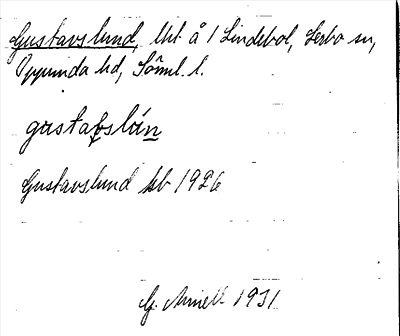 Gustavslund, lht å 1 Lindebol, Lerbo sn,
Oppunda hd, Söml. l.
gustafslún
Gustavslund kb 1926
G. Minell 1931